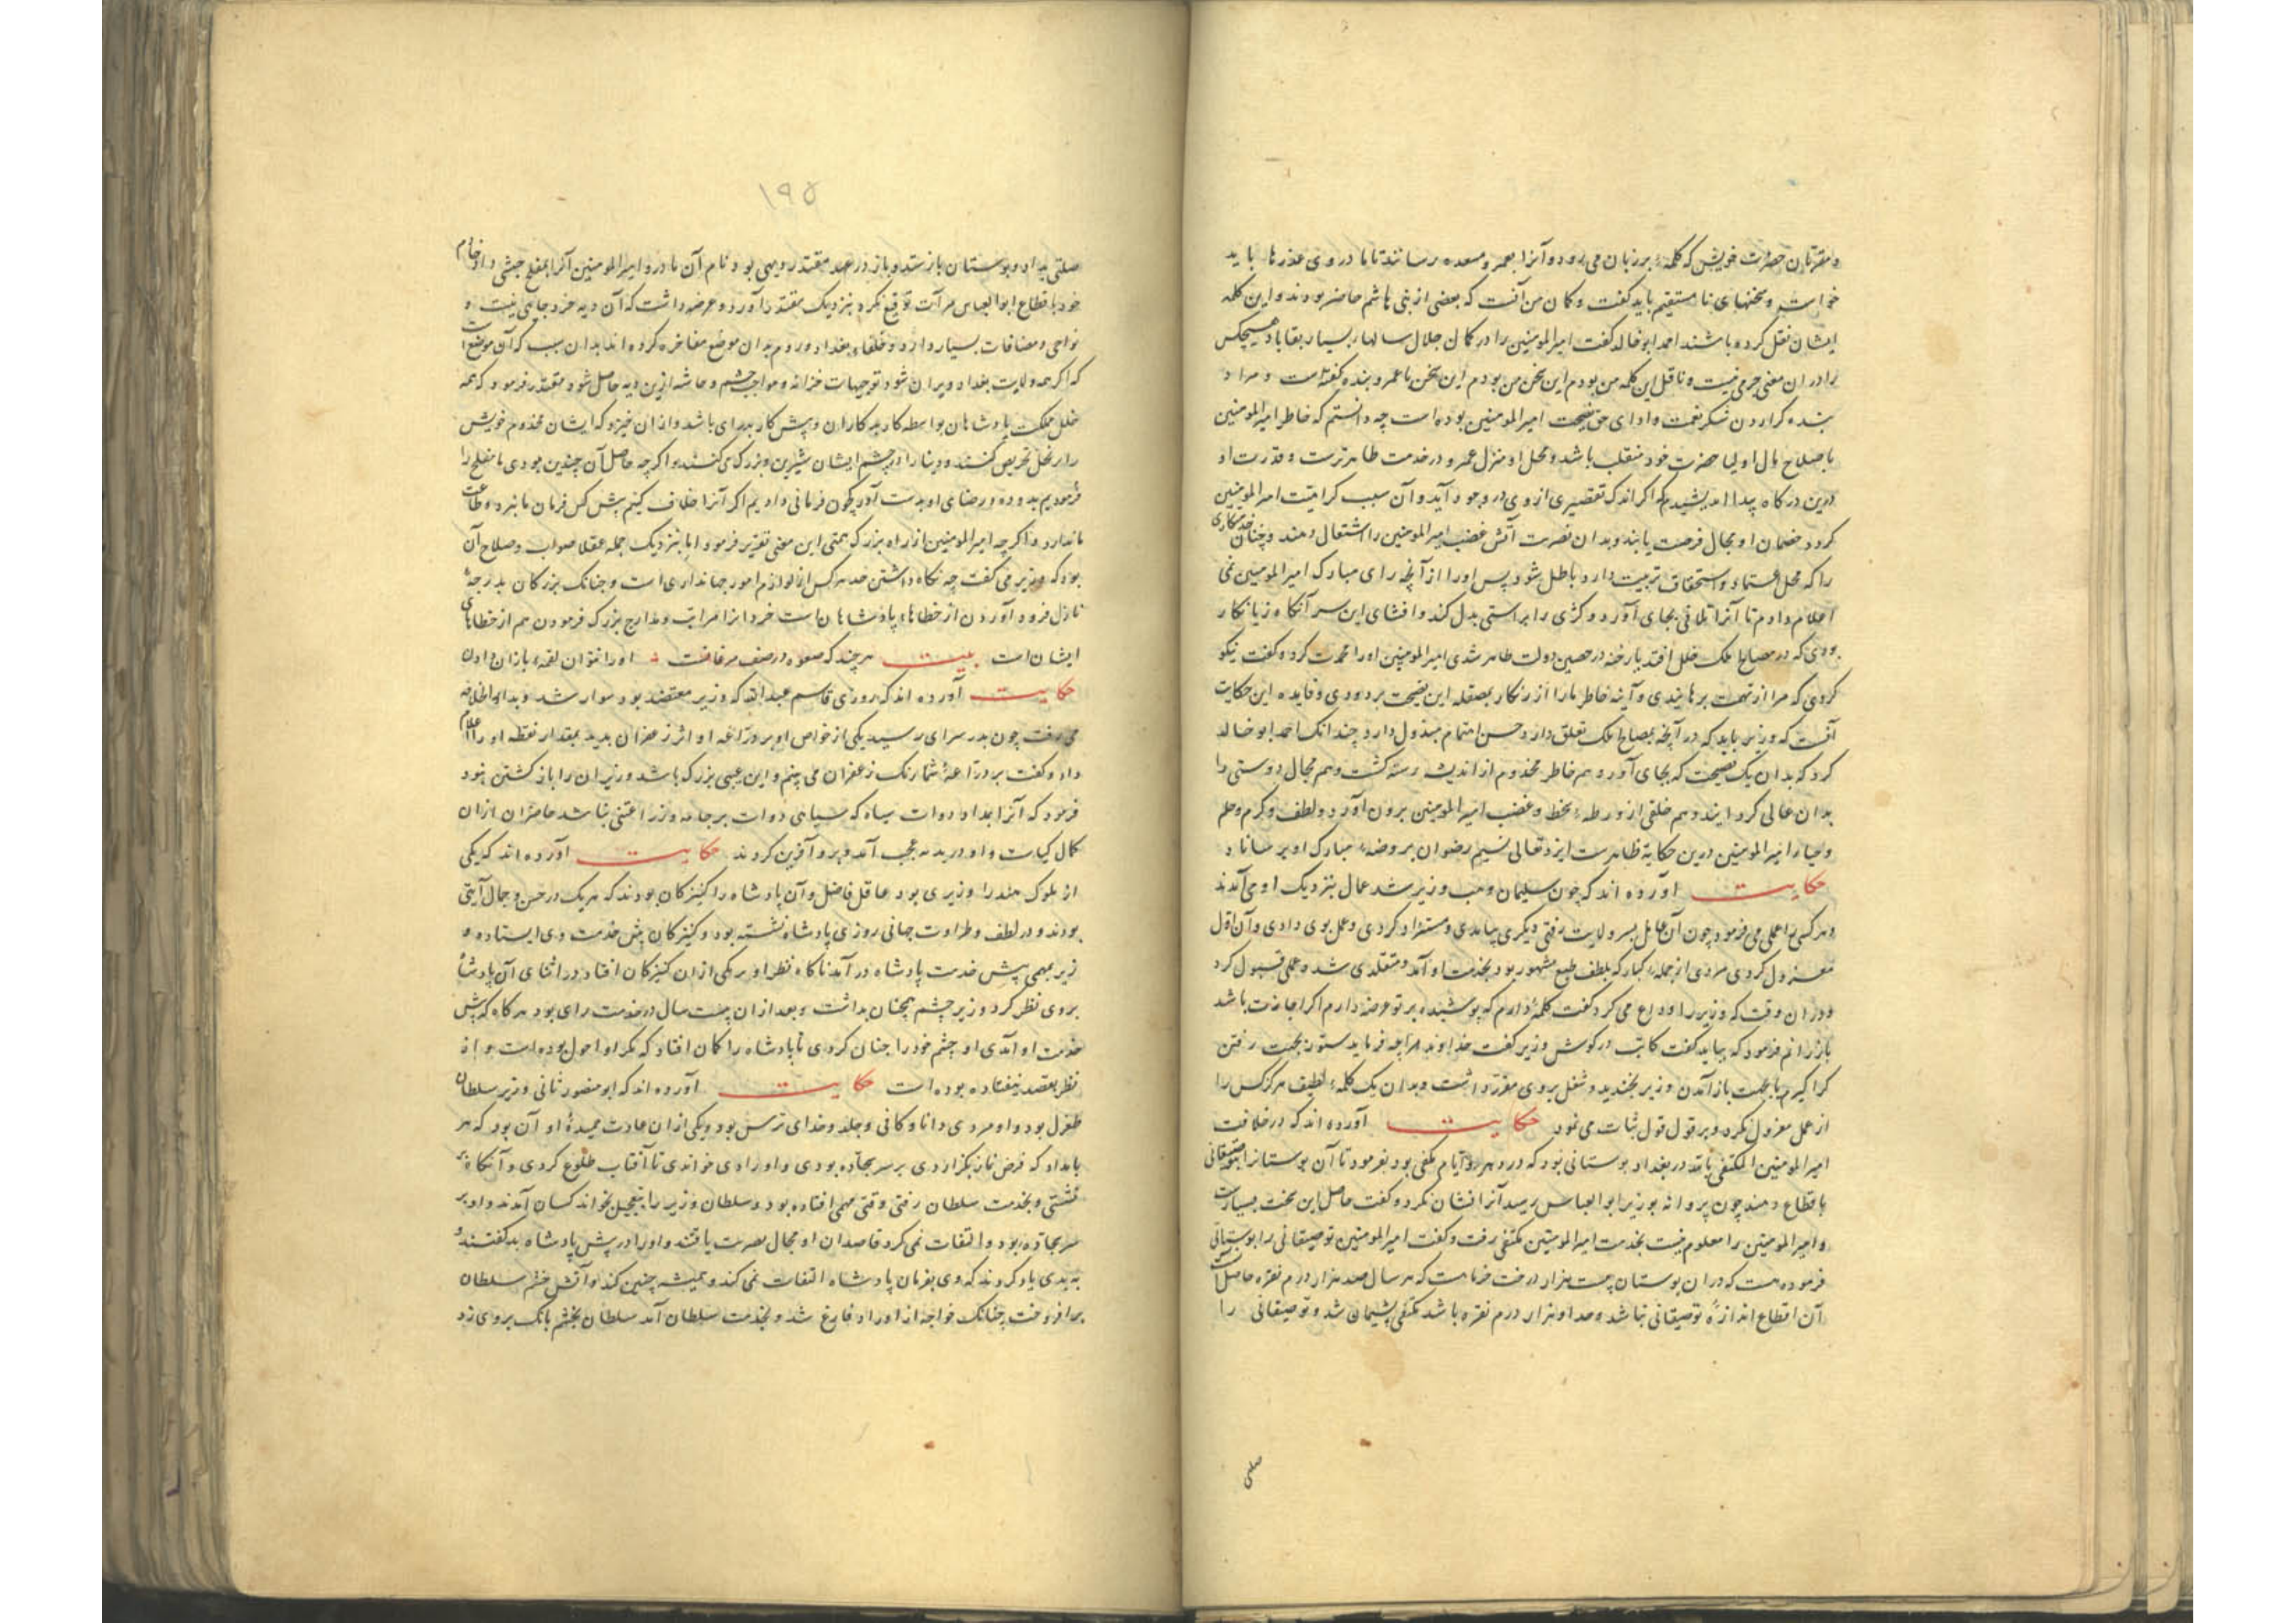 و مقربان حضرت خویش که کلمهٔ بر زبان می رود و آنرا بعمرو مسعده رسانند تا ما در وی عذرها باید
خواست و سخنهای نا مستقیم باید گفت و کمان من آنست که بعضی از بنی هاشم حاضر بودند و این کلمه
ایشان نقل کرده باشند احمد ابو خالد گفت امیرالمومنین را در کمال جلال سالهاء بسیار بقا باد هیچکس
را در ان معنی جرمی نیست و ناقل این کلمه من بودم این سخن من بودم این سخن با عمرو بنده گفته است و مراد
بنده گزاردن شکر نعمت و ادای حق نصیحت امیرالمومنین بوده است چه دانستم که خاطر امیرالمومنین
باصلاح حال اولیا حضرت خود متعلق باشد و محل و منزل عمرو در خدمت ظاهرترست و قدرت او
درین درکاه پیدا اندیشیدم که اکر اندک تقصیری از وی در وجود آید و آن سبب کراهیت امیرالمومنین
کردد خصمان او مجال فرصت یابند و بدان نصرت آتش غضب امیرالمومنین را اشتعال دهند و چنان خدمتکاری
را که محل اعتماد و استحقاق تربیت دارد باطل شود پس او را از آنچه رای مبارک امیرالمومنین
اعلام دادم تا آنرا تلافی بجای آورد و کژی را براستی بدل کند و افشای این سر آنکاه زیانکار
بودی که در مصالح ملک خلل افتد یا رخنه در حصین دولت ظاهر شدی امیرالمومنین او را محمدت کرد و گفت نیکو
کردی که مرا از تهمت برهانیدی و آینه خاطر ما را از زنکار بمصقله این نصیحت بزدودی و فایده این حکایت
آنست که وزیر باید که در آنچه بمصالح ملک تعلق دارد حسن اهتمام مبذول دارد چندانک احمد ابو خالد
کرد که بدان یک نصیحت که بجای آورد هم خاطر مخدوم از اندیشه رسته کشت و هم مجال دوستی را
بدان حالی کردانید و هم خلقی از ورطهٔ سخط و غضب امیرالمومنین برون آورد و لطف و کرم و حلم
و حیا امیرالمومنین درین حکایة ظاهرست ایزد تعالی نسیم رضوان بر روضهٔ مبارک او برساناد
حکایت آورده اند که چون سلیمان وهب وزیر شد عمال بنزدیک او می آمدند
و هر کسی را عملی می فرمود چون آن عامل بسر ولایت رفتی دیکری بیامدی و مستزاد کردی و عمل بوی دادی و آن اول
معزول کردی مردی از جملهٔ کبار که بلطف طبع مشهور بود بخدمت او آمد و متقلدی شد و عملی قبول کرد
و در ان وقت که وزیر را وداع می کرد گفت کلمهٔ دارم که پوشیده بر تو عرضه دارم اکر اجازت باشد
باز رانم فرمود که بیاید گفت کاتب در کوش وزیر گفت خداوند مرا چه فرماید ستور بجهت رفتن
کرا گیرم یا بجهت باز آمدن وزیر بخندید و شغل بروی مقرر داشت و بدان یک کلمهٔ لطیف هرکز کس را
از عمل معزول نکرد و بر قول قول ثبات می نمود حکایت آورده اند که در خلافت
امیرالمومنین المکتفی بالله در بغداد بوستانی بود که در دهر و ایام مکفی بود بفرمود تا آن بوستانرا بتوصیقانی
باقطاع دهند چون پروانه بوزیر ابو العباس رسید آنرا نشان نکرد و گفت حاصل این سخت بسیارست
و امیرالمومنین را معلوم نیست بخدمت امیرالمومنین مکتفی رفت و گفت امیرالمومنین توصیقانی را بوستانی
فرموده است که در ان بوستان بیست هزار درخت خرماست که هر سال صد هزار درم نقره حاصل
آن اقطاع اندازهٔ توصیقانی نباشد و صد او هزار درم نقره باشد مکتفی پشیمان شد و توصیقانی را
صلتی
۱۹۵
صلتی بداد و بوستان باز ستد و باز در عهد مقتدر دیهی بود نام آن بادرو امیرالمومنین آنرا بمفلح حبشی داد خادم
خود باقطاع ابو العباس فرات توقیع نکرد بنزدیک مقتدر آورد و عرضه داشت که آن دیه خرد جایی نیست و
نواحی و مضافات بسیار دارد و خلفاء بغداد و روم بدان موضع مفاخره کرده اند بدان سبب که آن موضع است
که اکر همه ولایت بغداد ویران شود توجیهات خزانه و مواجب حشم و حاشیه ازین دیه حاصل شود مقتدر فرمود که همه
خلل ملک پادشاهان بواسطه کار بدکاران و پیش کار بدرای باشد و از ان خیزد که ایشان مخدوم خویش
را بر بخل تحریص کنند و دنیا را در چشم ایشان شیرین و بزرک می کنند و اکر چه حاصل آن چندین بودی ما مفلح را
فرمودیم بدو ده و رضای او بدست آور چون فرمانی دادیم اکر آنرا خلاف کنیم پیش کس فرمان ما نبرد و طاعت
ما ندارد و اکر چه امیرالمومنین از راه بزرک همتی این معنی تقریر فرمود اما بنزدیک جمله عقلا صواب و صلاح آن
بود که وزیر می گفت چه نکاه داشتن حد هر کس از لوازم امور جهانداری است و چنانک بزرکان بدرجهٔ
نازل فرود آوردن از خطاها پادشاهان است خرد انرا مراتب و مدارج بزرک فرمودن هم از خطاهای
ایشان است بیت هر چند که صعوه در صف مرغانست او را نتوان لقمهٔ بازان دادن
حکایت آورده اند که روزی قاسم عبدالله که وزیر معتضد بود سوار شد و بدار الخلافه
می رفت چون بدر سرای رسید یکی از خواص او بر دراعه او اثر زعفران بدید بمقدار نقطه او را اعلام
داد و گفت بر دراعهٔ شما رنک زعفران می بینم و این عیبی بزرک باشد وزیران را باز کشتن نبود
فرمود که آنرا بمداد دوات سیاه کن سیاهی دوات بر جامه وزرا عیبی نباشد حاضران از ان
کمال کیاست و او در بدیهه عجب آمد و برو آفرین کردند حکایت آورده اند که یکی
از ملوک هند را وزیری بود عاقل فاضل و آن پادشاه را کنیزکان بودند که هر یک در حسن و جمال آیتی
بودند و در لطف و طراوت جهانی روزی پادشاه نشسته بود و کنیزکان پیش خدمت وی ایستاده و
زیر بمهمی پیش خدمت پادشاه در آمد ناکاه نظر او بر یکی از ان کنیزکان افتاد در اثنای آن پادشاه
بروی نظر کرد وزیر چشم همچنان بداشت و بعد از ان بیست سال در خدمت رای بود هر کاه که پیش
خدمت او آمدی او چشم خود را چنان کردی تا پادشاه را کمان افتاد که مکر او احول بوده است و آن
نظر بقصد نیفتاده بوده است حکایت آورده اند که ابو منصور ثانی وزیر سلطان
طغرل بود و او مردی دانا و کافی و جلد و خدای ترس بود و یکی از ان عادت حمیدهٔ او آن بود که هر
بامداد که فرض نماز بکزاردی بر سر سجاده بودی و اوراد می خواندی تا آفتاب طلوع کردی و آنکاه بر
نشستی و بخدمت سلطان رفتی وقتی مهمی افتاده بود و سلطان وزیر را بتعجیل بخواند کسان آمدند و او بر
سر سجاده بود و التفات نمی کرد قاصدان او مجال نصرت یافتند و او را در پیش پادشاه بد گفتند و
به بدی یاد کردند که وی بفرمان پادشاه التفات نمی کند و همیشه چنین کند و آتش خشم سلطان
برافروخت چنانک خواجه از اوراد فارغ شد و بخدمت سلطان آمد سلطان بخشم بانک بروی زد